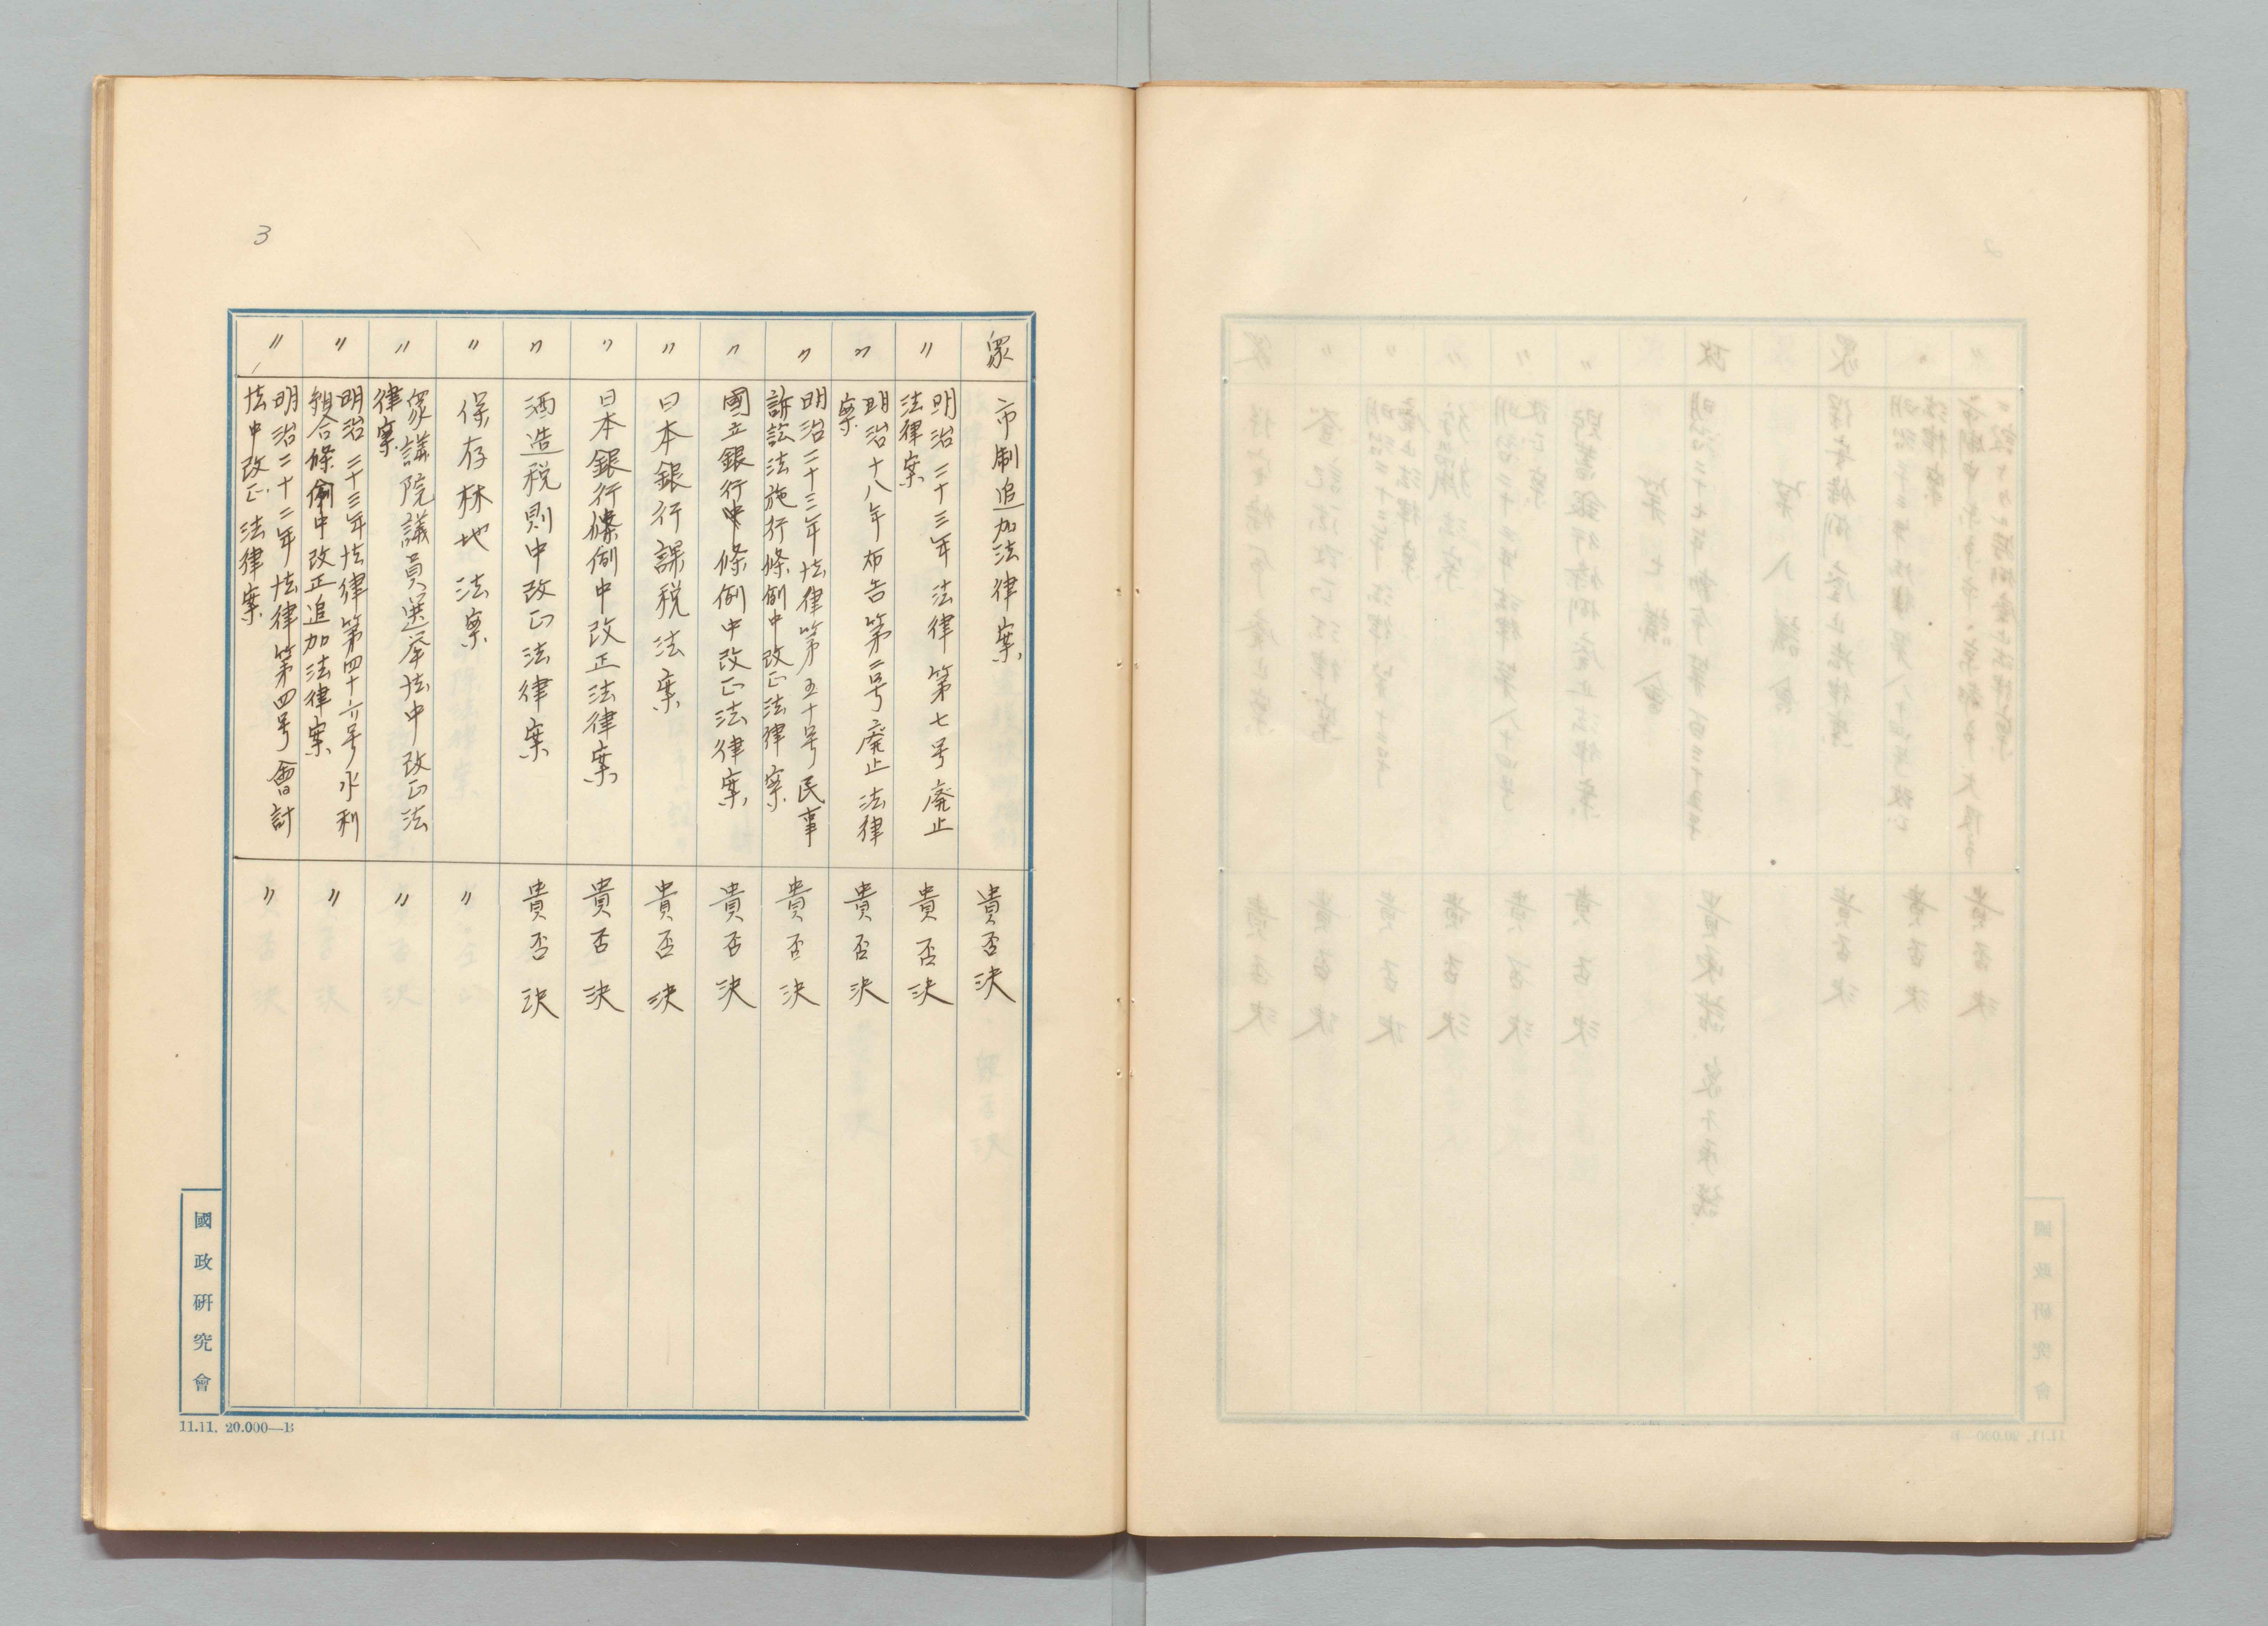 3
衆
市制追加法律案
貴否決
〃
明治二十三年法律第七号廃止
法律案
貴否決
〃
明治十八年布告第二号廃止法律
案
貴否決
〃
明治二十三年法律第五十号民事
訴訟法施行條例中改正法律案
貴否決
〃
國立銀行條例中改正法律案
貴否決
〃
日本銀行課税法案
貴否決
〃
日本銀行條例中改正法律案
貴否決
〃
酒造税則中改正法律案
貴否決
〃
保存林地法案
〃
〃
衆議院議員選挙法中改正法
律案
〃
〃
明治二十三年法律第四十六号水利
組合條例中改正追加法律案
〃
〃
明治二十二年法律第四号會計
法中改正法律案
〃
國政研究會
11.11. 20.000—B